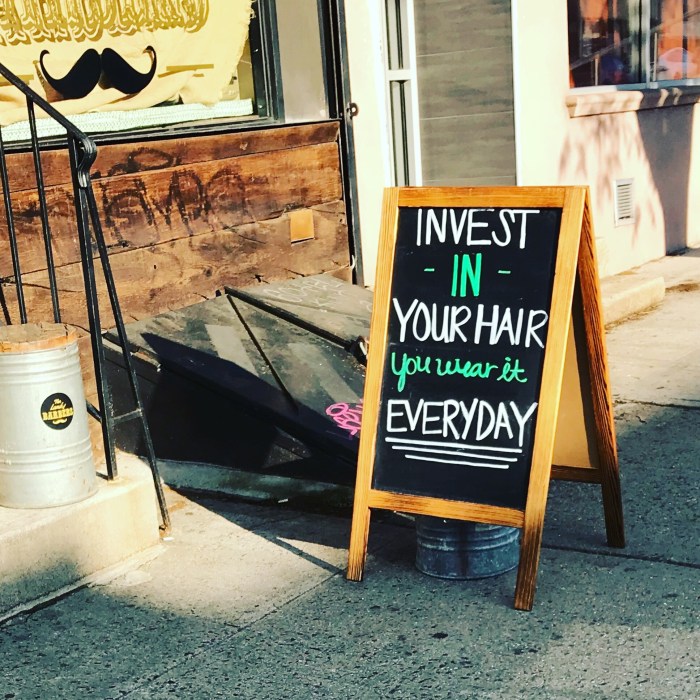 INVEST
- IN -
YOUR HAIR
you wear it
EVERYDAY
BARBERS